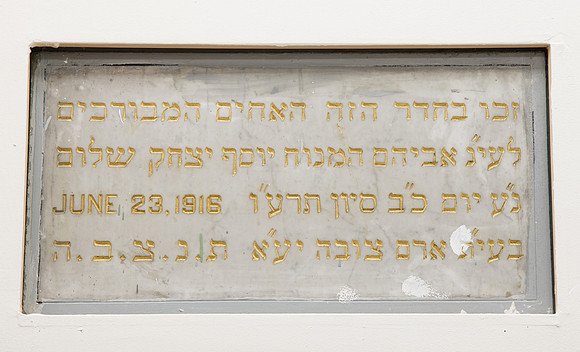 זכו בחדר הזה האחים המבורכים
לעי״נ אביהם המנוח יוסף יצחק שלום
נ״ע יום כ״ב סיון תרע״ו JUNE 23, 1916
בעי״ת ארם צובה יע״א ת.נ.צ.ב.ה